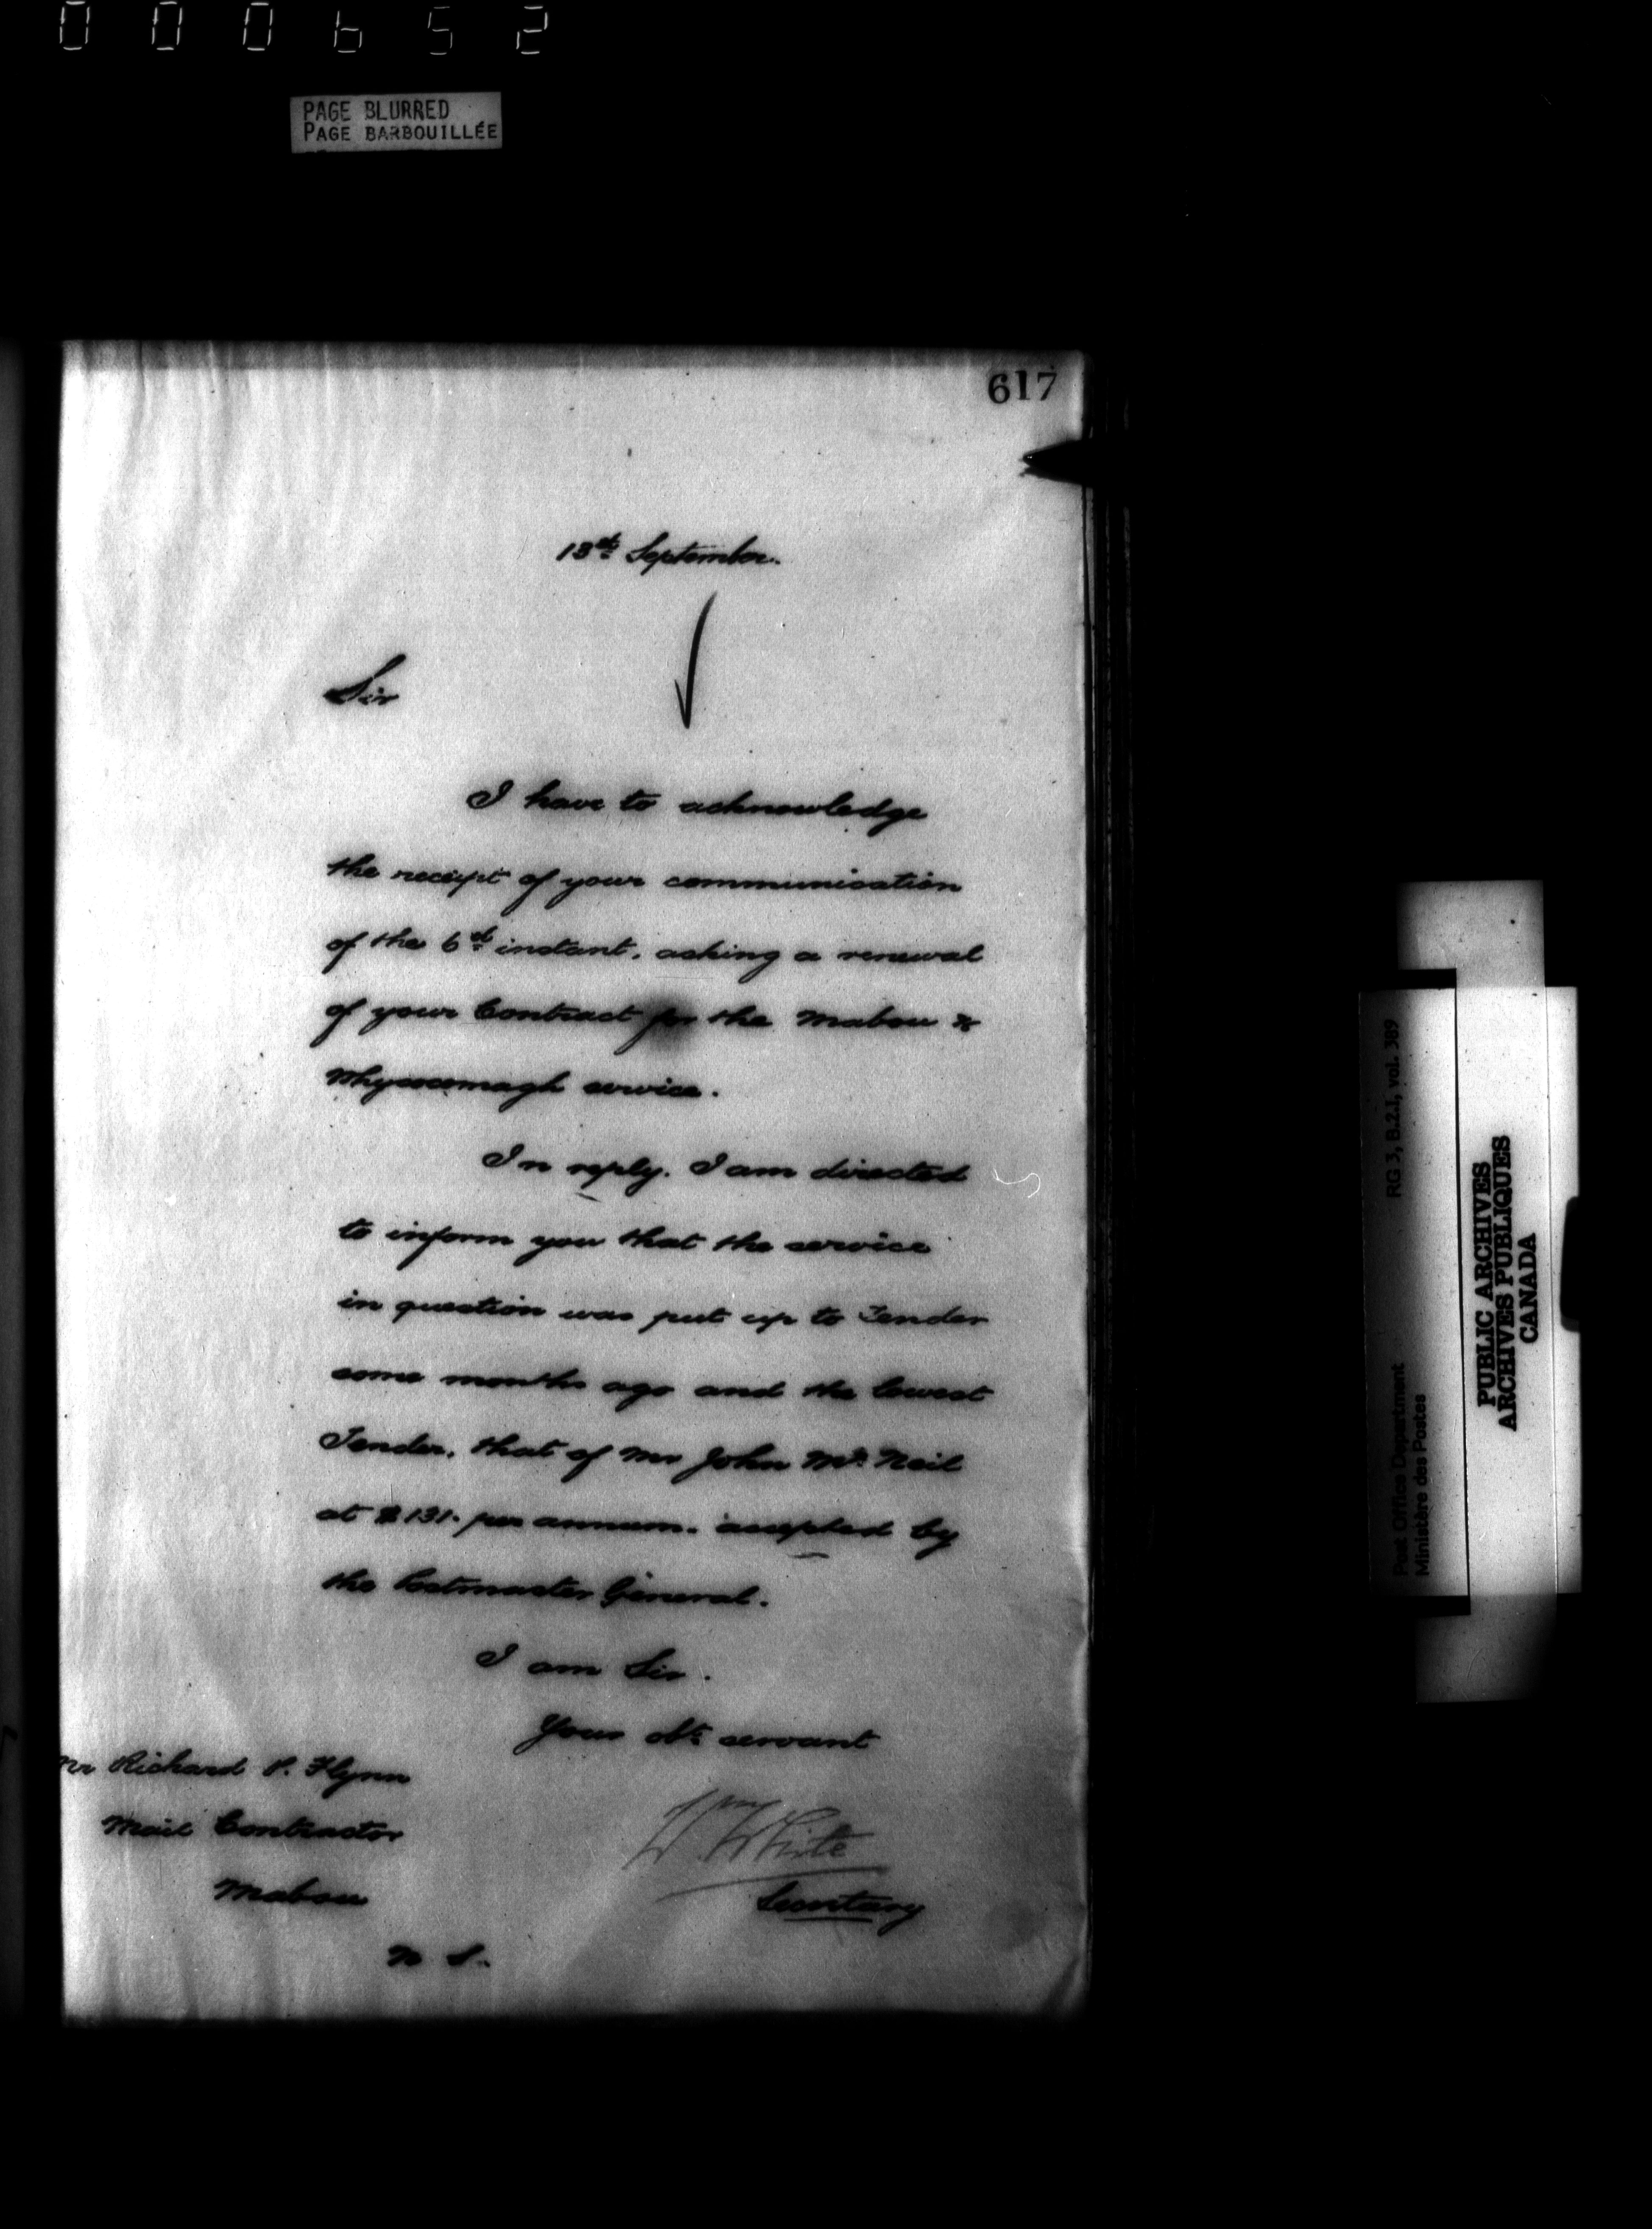 000652
PAGE BLURRED
PAGE BARBOUILLÉE
617
13th September.
Sir
I have to acknowledge
the receipt of your communication
of the 6th instant, asking a renewal
of your Contract for the Mabou &
Whycocomagh service.
In reply. I am directed
to inform you that the service
in question was put up to Tender
some months ago and the lowest
Tender, that of Mr John McNeil
at $131. per annum. accepted by
the Postmaster General.
I am Sir.
Your obt servant
Wm White
Secretary
Mr Richard P. Flynn
Mail Contractor
Mabou
N S.
RG 3, B.2.1, vol. 389
Post Office Department
Ministère des Postes
PUBLIC ARCHIVES
ARCHIVES PUBLIQUES
CANADA